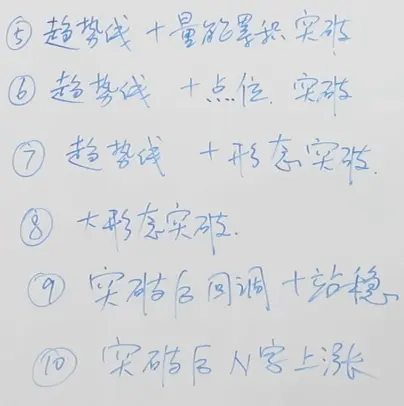 ⑤ 趋势线 + 量能累积 突破
⑥ 趋势线 + 点位. 突破
⑦ 趋势线 + 形态突破.
⑧ 大形态突破.
⑨ 突破后回调 + 站稳
⑩ 突破后 N字上涨